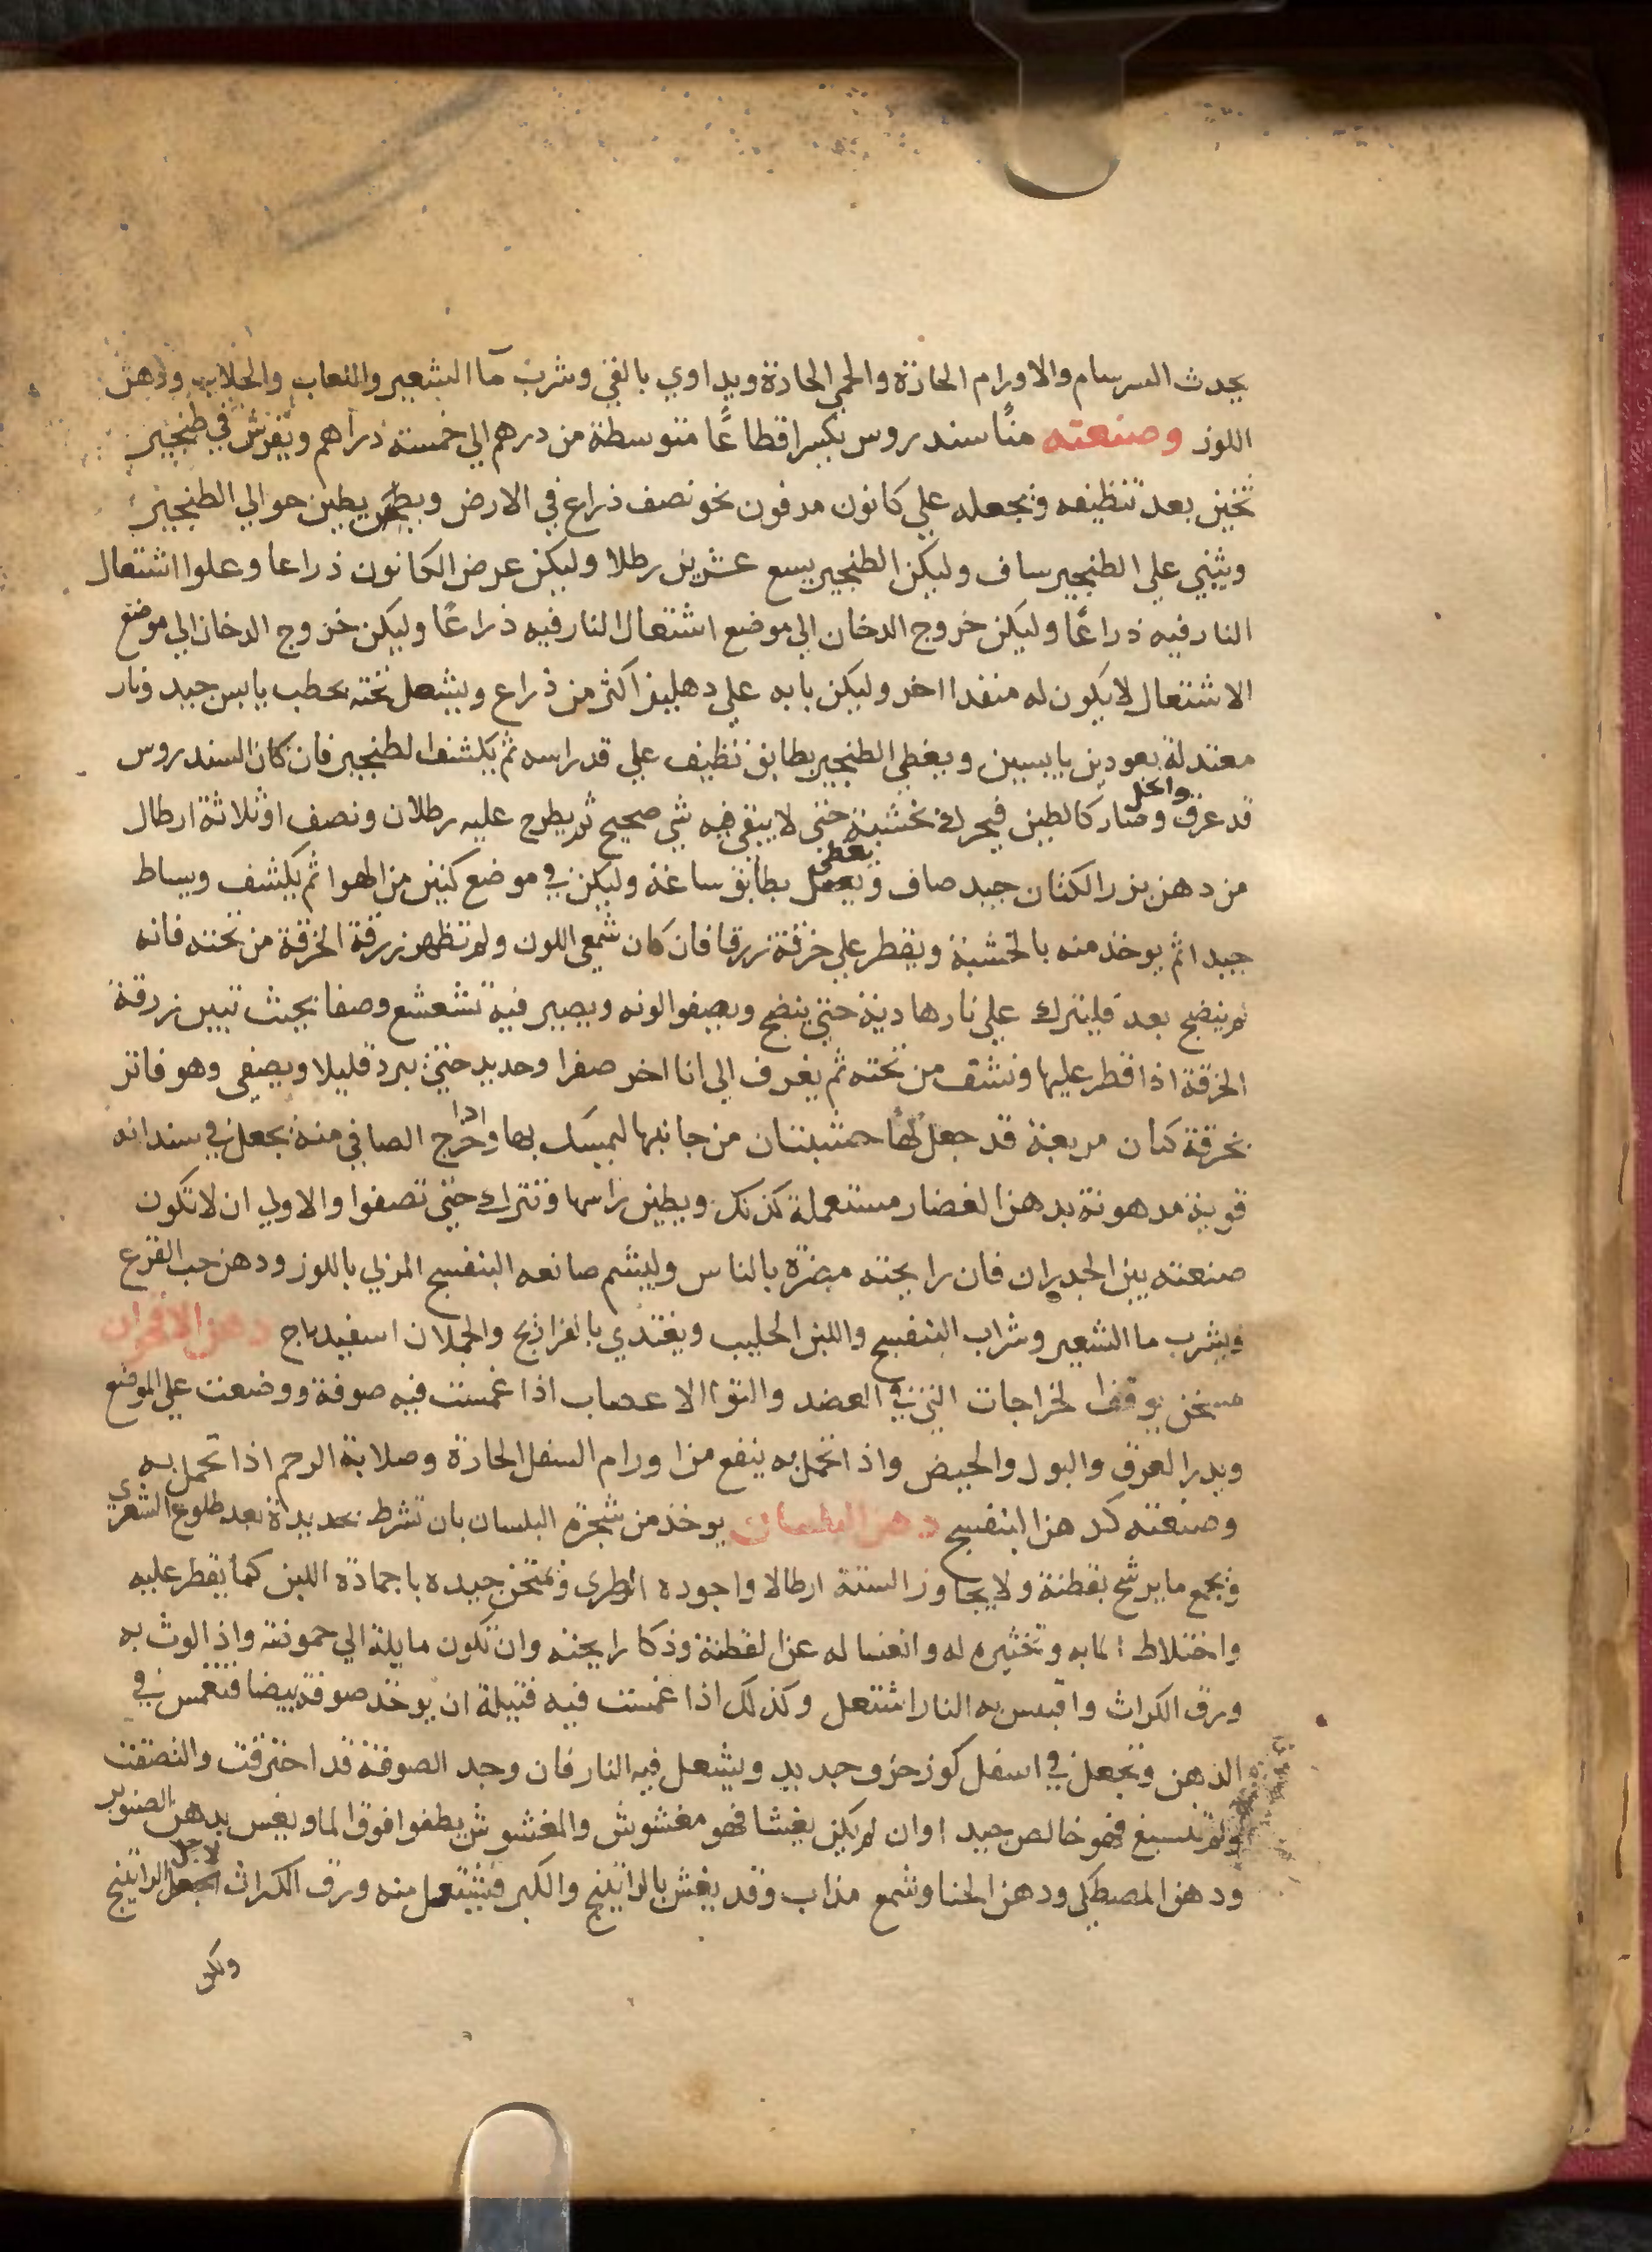 يحدث السرسام والاورام الحادة والحمي الحادة ويداوي بالقي وشرب مآ الشعير واللعاب والجلاب ودهن
اللوز وصنعته منًا سندروس يكسر اقطاعًا متوسطة من درهم الي خمسة دراهم ويفرش في طنجير
ثخين بعد تنظيفه ويجعله علي كانون مدفون نحو نصف ذراع في الارض ويطين حوالي الطنجير
ويثني علي الطنجير ساف وليكن الطنجير يسع عشرين رطلا وليكن عرض الكانون ذراعا وعلوا اشتعال
النار فيه ذراعًا وليكن خروج الدخان الي موضع اشتعال النار فيه ذراعًا وليكن خروج الدخان الي موضع
الاشتعال لا يكون له منفدا اخر وليكن بابه علي دهليز اكثر من ذراع ويشعل تحته بحطب يابس جيد ونار
معتدلة بعودين يابسين ويغطي الطنجير بطابق نظيف علي قدر راسه ثم يكشف الطنجير فان كان السندروس
قد عرق وانحل وصار كالطين فيحرك بخشبة حتي لا يبقي فيه شي صحيح ثم يطرح عليه رطلان ونصف او ثلاثة ارطال
من دهن بزر الكتان جيد صاف ويغطي بطابق ساعة وليكن في موضع كنين من الهوا ثم يكشف ويساط
جيدا ثم يوخذ منه بالخشبة ويقطر علي خرقة زرقا فان كان شمعي اللون ولم تظهر زرقة الخرقة من تحته فانه
لم ينضج بعد فليترك علي نار هادية حتي ينضج ويصفوا لونه ويصير فيه تشعشع وصفا بحيث تبين زرقة
الخرقة اذا قطر عليها ونشف من تحته ثم يغرف الي انا اخر صفرا وحديد حتي يبرد قليلا ويصفي وهو فاتر
بخرقة كتان مربعة قد جعل لها خشبتان من جانبها ليمسك بها واذا اخرج الصافي منه يجعل في سندانه
قوية مدهونة بدهن الغضار مستعملة كذلك ويطين راسها وتترك حتي تصفوا والاولي ان لا تكون
صنعته بين الجدران فان رايحته مضرة بالناس وليشم صانعه البنفسج المزلي باللوز ودهن حب القرع
ويشرب ما الشعير وشراب البنفسج واللبن الحليب ويغتدي بالفراريج والحملان اسفيدباج دهن الاقحوان
مسخن يوقف الخراجات التي في العضد والتوا الاعصاب اذا غمست فيه صوفة ووضعت علي الموضع
ويدر العرق والبول والحيض واذا تحمل به ينفع من اورام السفل الحادة وصلابة الرحم اذا تحمل به
وصنعته كدهن البنفسج دهن البلسان يوخذ من شجرة البلسان بان تشرط بحديدة بعد طلوع الشعري
ويجمع ما يرشح بقطنة ولا يجاوز الستة ارطالا واجوده الطري ويمتحن جيده باجمادة اللبن كما يقطر عليه
واختلاط الما به وتخثيره له وانغساله عن القطنة وذكا رايحته وان تكون مايلة الي حموضة واذا لوث به
ورق الكراث واقبس به النار اشتعل وكذلك اذا غمست فيه فتيلة ان يوخذ صوفة بيضا فتغمس في
الدهن وتجعل في اسفل كوز خزف جديد ويشعل فيه النار فان وجد الصوفة قد احترقت والتصقت
ولم تنسبغ فهو خالص جيد اوان لم يكن بغشا فهو مغشوش والمغشوش يطفوا فوق الما ويغش بدهن الصنوبر
ودهن المصطكي ودهن الحنا وشمع مذاب وقد يغش بالراتينج والكبر فيشتعل منه ورق الكراث لاجل الراتينج
ولكن